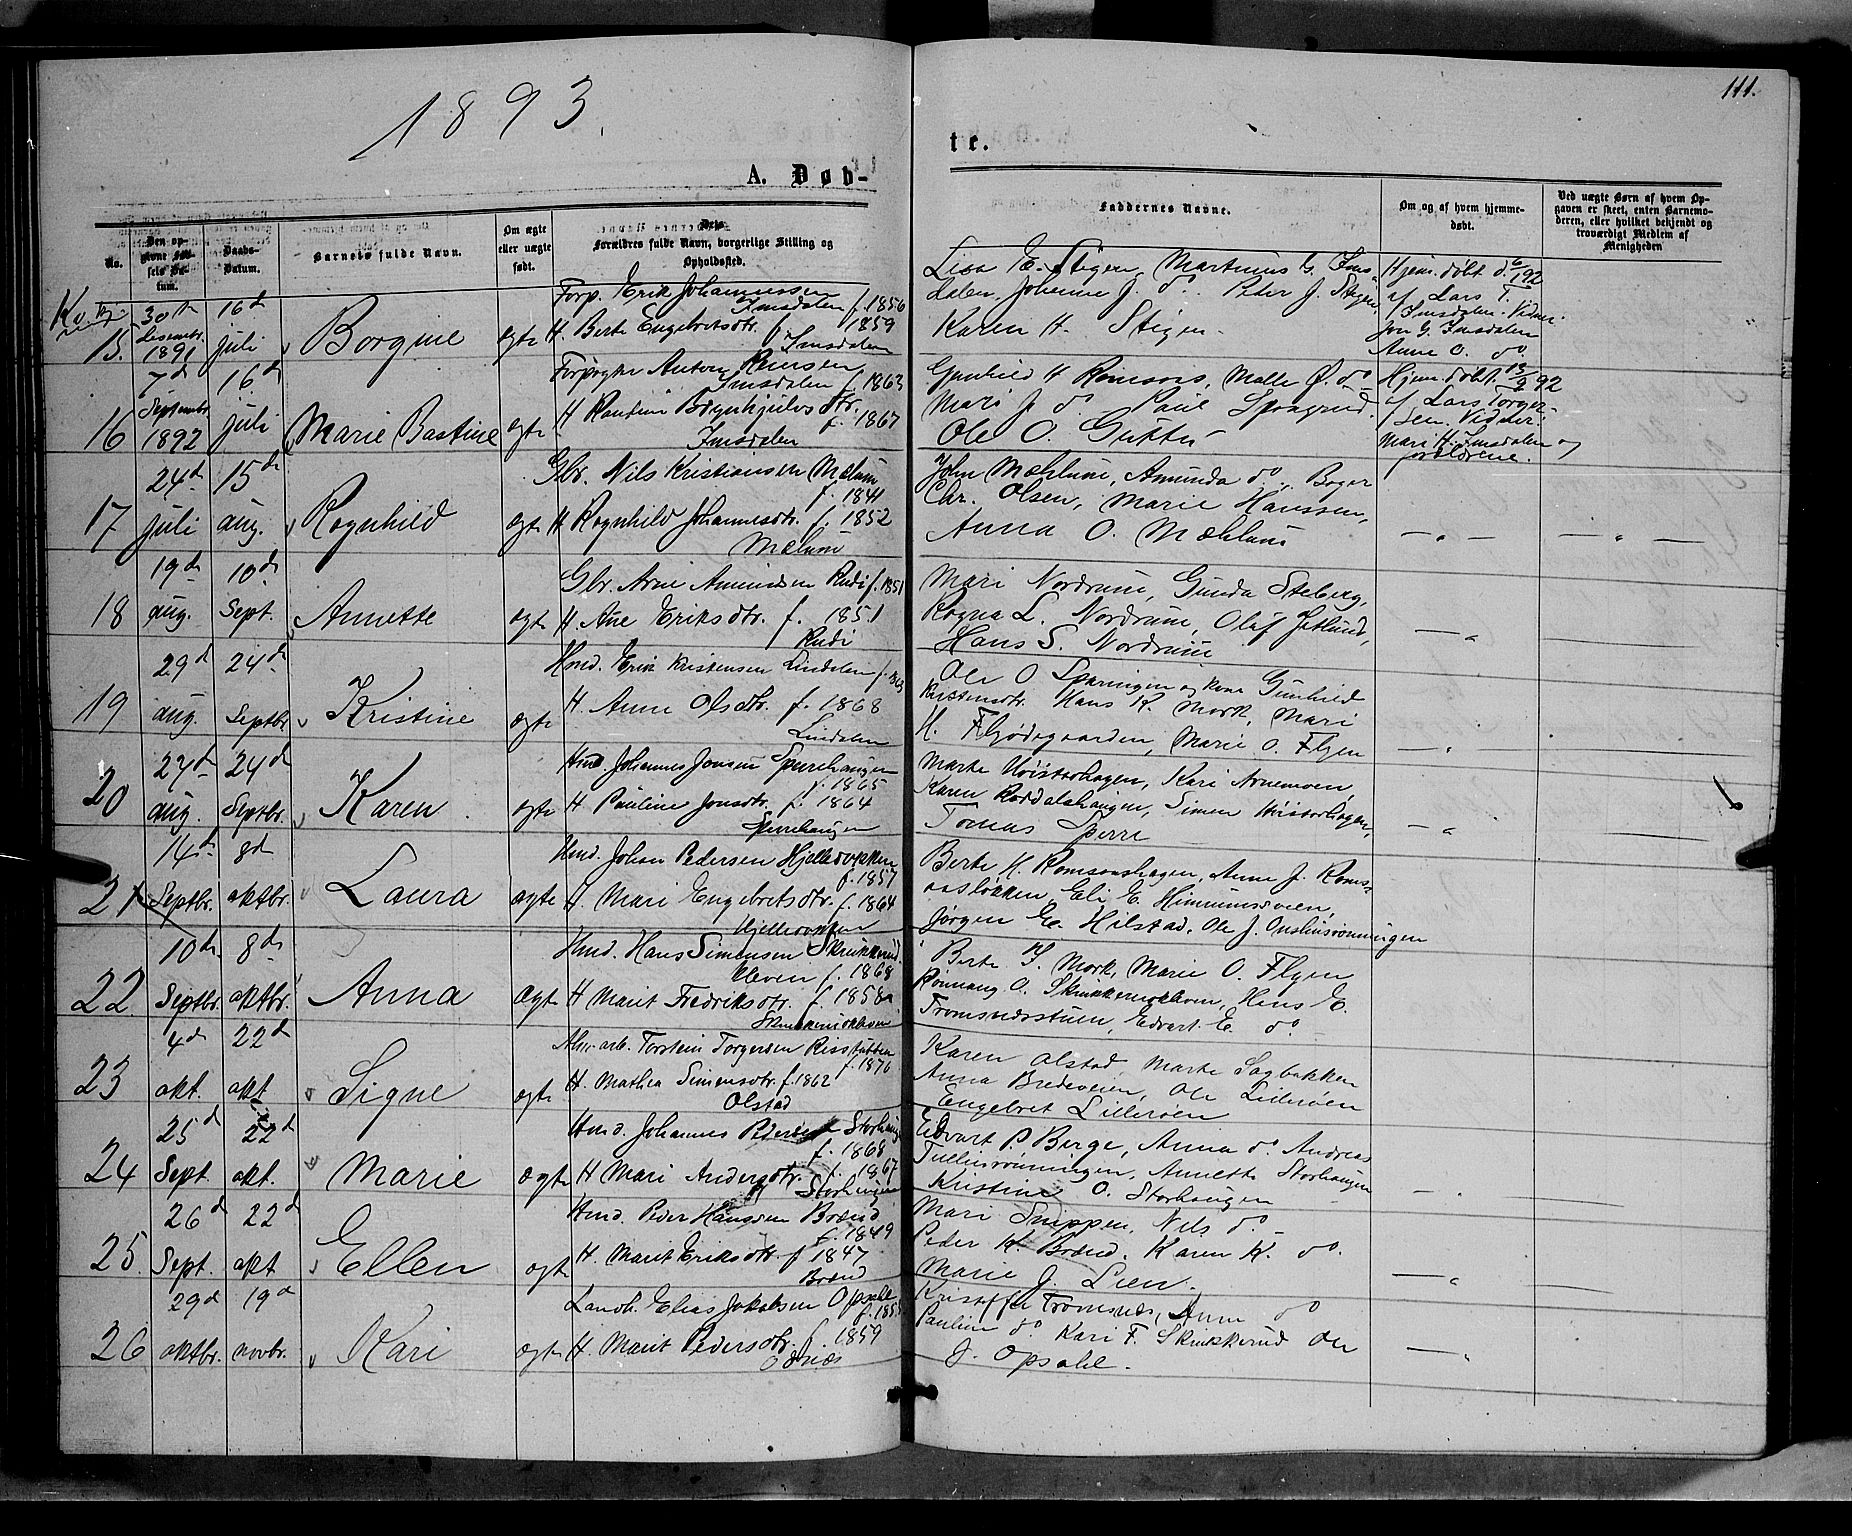 1893.
111.
A. Døb-
te.
No.
Den op-
givne Fød-
sels Da-
tum.
Daabs-
Datum.
Barnets fulde Navn.
Om ægte
eller uægte
født.
Dets
Forældres fulde Navn, borgerlige Stilling og
Opholdssted.
Faddernes Navne.
Om og af hvem hjemme-
døbt.
Ved uægte Børn af hvem Op-
gaven er skeet, enten Barnemo-
deren, eller hvilket bekjendt og
troværdigt Medlem af
Menigheden
15.
30te
Desembr.
1891
16de
juli
Borgine
egte
Forp. Erik Johannessen
Imsdalen f. 1856
H. Berte Engebretsdtr. f. 1859
Imsdalen
Lisa E. Stigen, Martinus G. Ims-
dalen, Johenne J. do. Peder J. Stigen,
Karen H. Stigen.
Hjem. døbt d. 6/1 92
af Lars T.
Imsdalen. Vidner
Jon G. Imsdalen
Anne O. do.
16
7d
Septembr
1892
16de
juli
Marie Bastine
egte
Forpagter Anton Reinsen
Imsdalen f. 1863
H Pauline Brynhjulvsdtr.
f. 1867
Imsdalen
Gunhild H Romsaas, Malle Ø. do
Mari J. do. Paul
Ole O.
Hjem. døbt 13/9 92
af Lars Torger-
sen. Vidner:
Mari H. Imsdalen og
forældrene.
17
24d
juli
15de
aug.
Ragnhild
egte
Gbr. Nils Kristiansen Mælum
f. 1841
H Ragnhild Johannesdtr. f. 1852
Mælum
John Mæhlum, Amunda do., Boger
Chr. Olsen, Marie Hanssen,
Anna O. Mæhlum
— " —
— " —
18
19de
aug.
10de
Sept.
Annette
egte
Gbr. Arne Amundsen Rudi f. 1851
H. Ane Eriksdtr. f. 1851
Rudi
Mari Nordrum, Gunda Steberg,
Ragna L. Nordrum, Oluf Jetlund,
Hans S. Nordrum
— "
19
29d
aug.
24de
Septbr
Kristine
egte
Hmd. Erik Kristensen Lindalen f. 1863
H. Anne Olsdtr. f. 1868
Lindalen
Ole O Sparingen og kone Gunhild
Kristensdtr. Hans K. Mork, Mari
H. Fljødegaarden, Marie O. Flyen
— "
20
27de
aug.
24de
Septbr.
Karen
egte
Hmd Johannes Jonsen Sperrhaugen
f. 1865
H. Pauline Jonsdtr. f. 1864
Sperrhaugen
Marte Høistorhagen, Kari Arnemoen,
Karen Roddalshaugen, Simen Høistorhagen,
Tomas Sperr
— "
21
14de
Septbr.
8de
oktbr.
Laura
ægte
Hmd. Johan Pedersen Hjellebækken
f. 1857
H. Mari Engebretsdtr. f. 1864
Berte H. Romsaashagen, Anne J. Roms-
aasløkken, Eli E. Himmunsveen,
Jørgen E. Hilstad, Ole J. Onshusrønningen
22
10de
Septbr.
8de
oktbr.
Anna
ægte
Hmd. Hans Simensen Skrukkerud
kleven f. 1868
H Marit Fredriksdtr. f. 1858
Skrukkerudkleven
Berte F. Mork, Marie O. Flyen
Rønnaug O. Skrukkerudkleven, Hans E.
Tromsnæsstuen, Edvart E. do —
23
4de
okt.
22de
okt
Signe
egte
Torstein Torgersen
f. 1876
H. Mathea Simensdtr. f. 1862
Olstad
Karen Olstad, Marte Sagbakken
Anna Bredeveien, Ole Lillerøen
Engebret Lillerøen
24
25d
Sept.
22d
okt.
Marie
egte
Hmd. Johannes Pedersen Storhaug
f. 1868
H Mari Andersdtr. f. 1867
Storhaugen
Edvart P. Berge, Anna do. Andreas
Tullusrønningen, Annette Storhaugen
Kristine O. Storhaugen
—
25.
26d
Sept.
22d
okt
Ellen
egte
Hmd. Peder Hansen Brænd
f. 1849
H. Marit Eriksdtr. f 1847
Brænd
Mari Snippen, Nils do.
Peder K. Brænd. Karen K. do.
Marie J. Lien.
— "
26
29d
oktbr.
19d
novbr.
Kari
egte
Landh. Elias Jakobsen Opsahl
f. 185
H. Marit Pedersdtr. f. 1859
Kristoffer Tromsnæs, Anne do
Pauline do. Kari F. Skrukkerud Ole
J. Opsahl.
— "